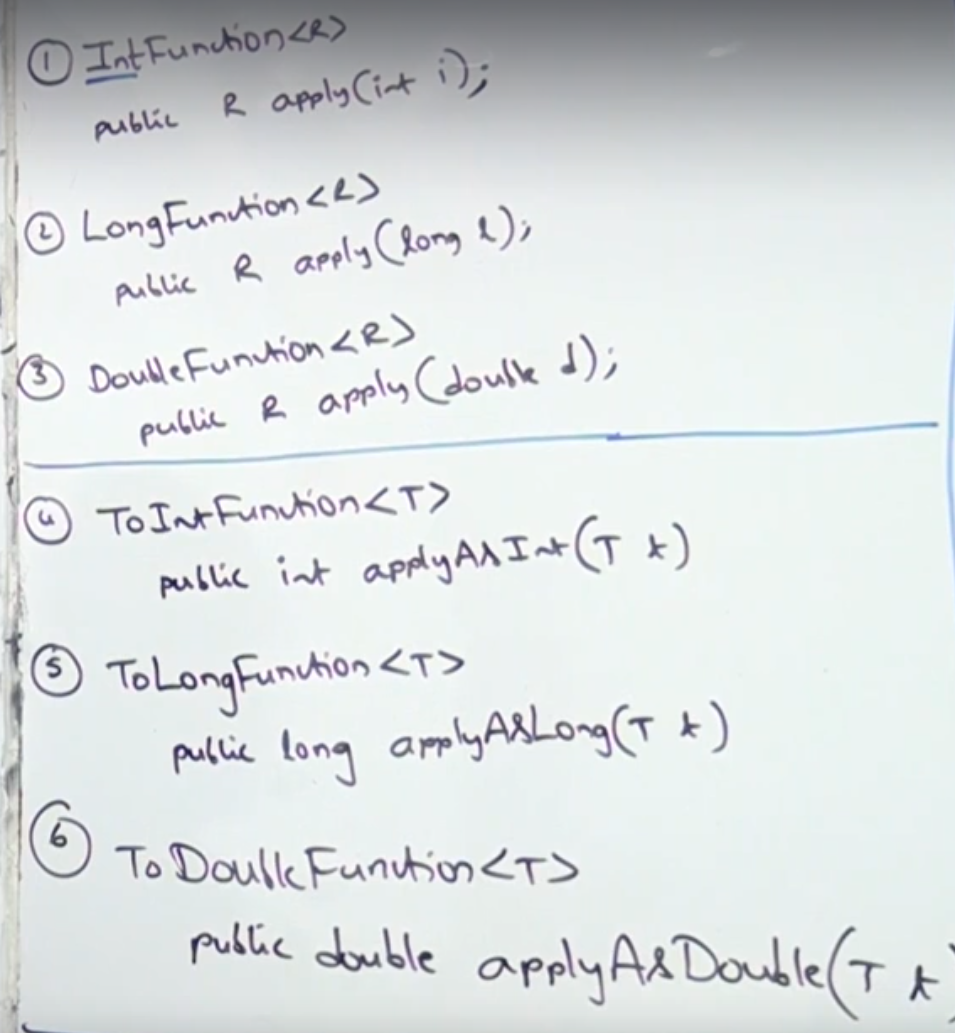 ① IntFunction<R>
public R apply(int i);
② LongFunction<R>
public R apply(long l);
③ DoubleFunction<R>
public R apply(double d);
④ ToIntFunction<T>
public int applyAsInt(T t)
⑤ ToLongFunction<T>
public long applyAsLong(T t)
⑥ ToDoubleFunction<T>
public double applyAsDouble(T t)